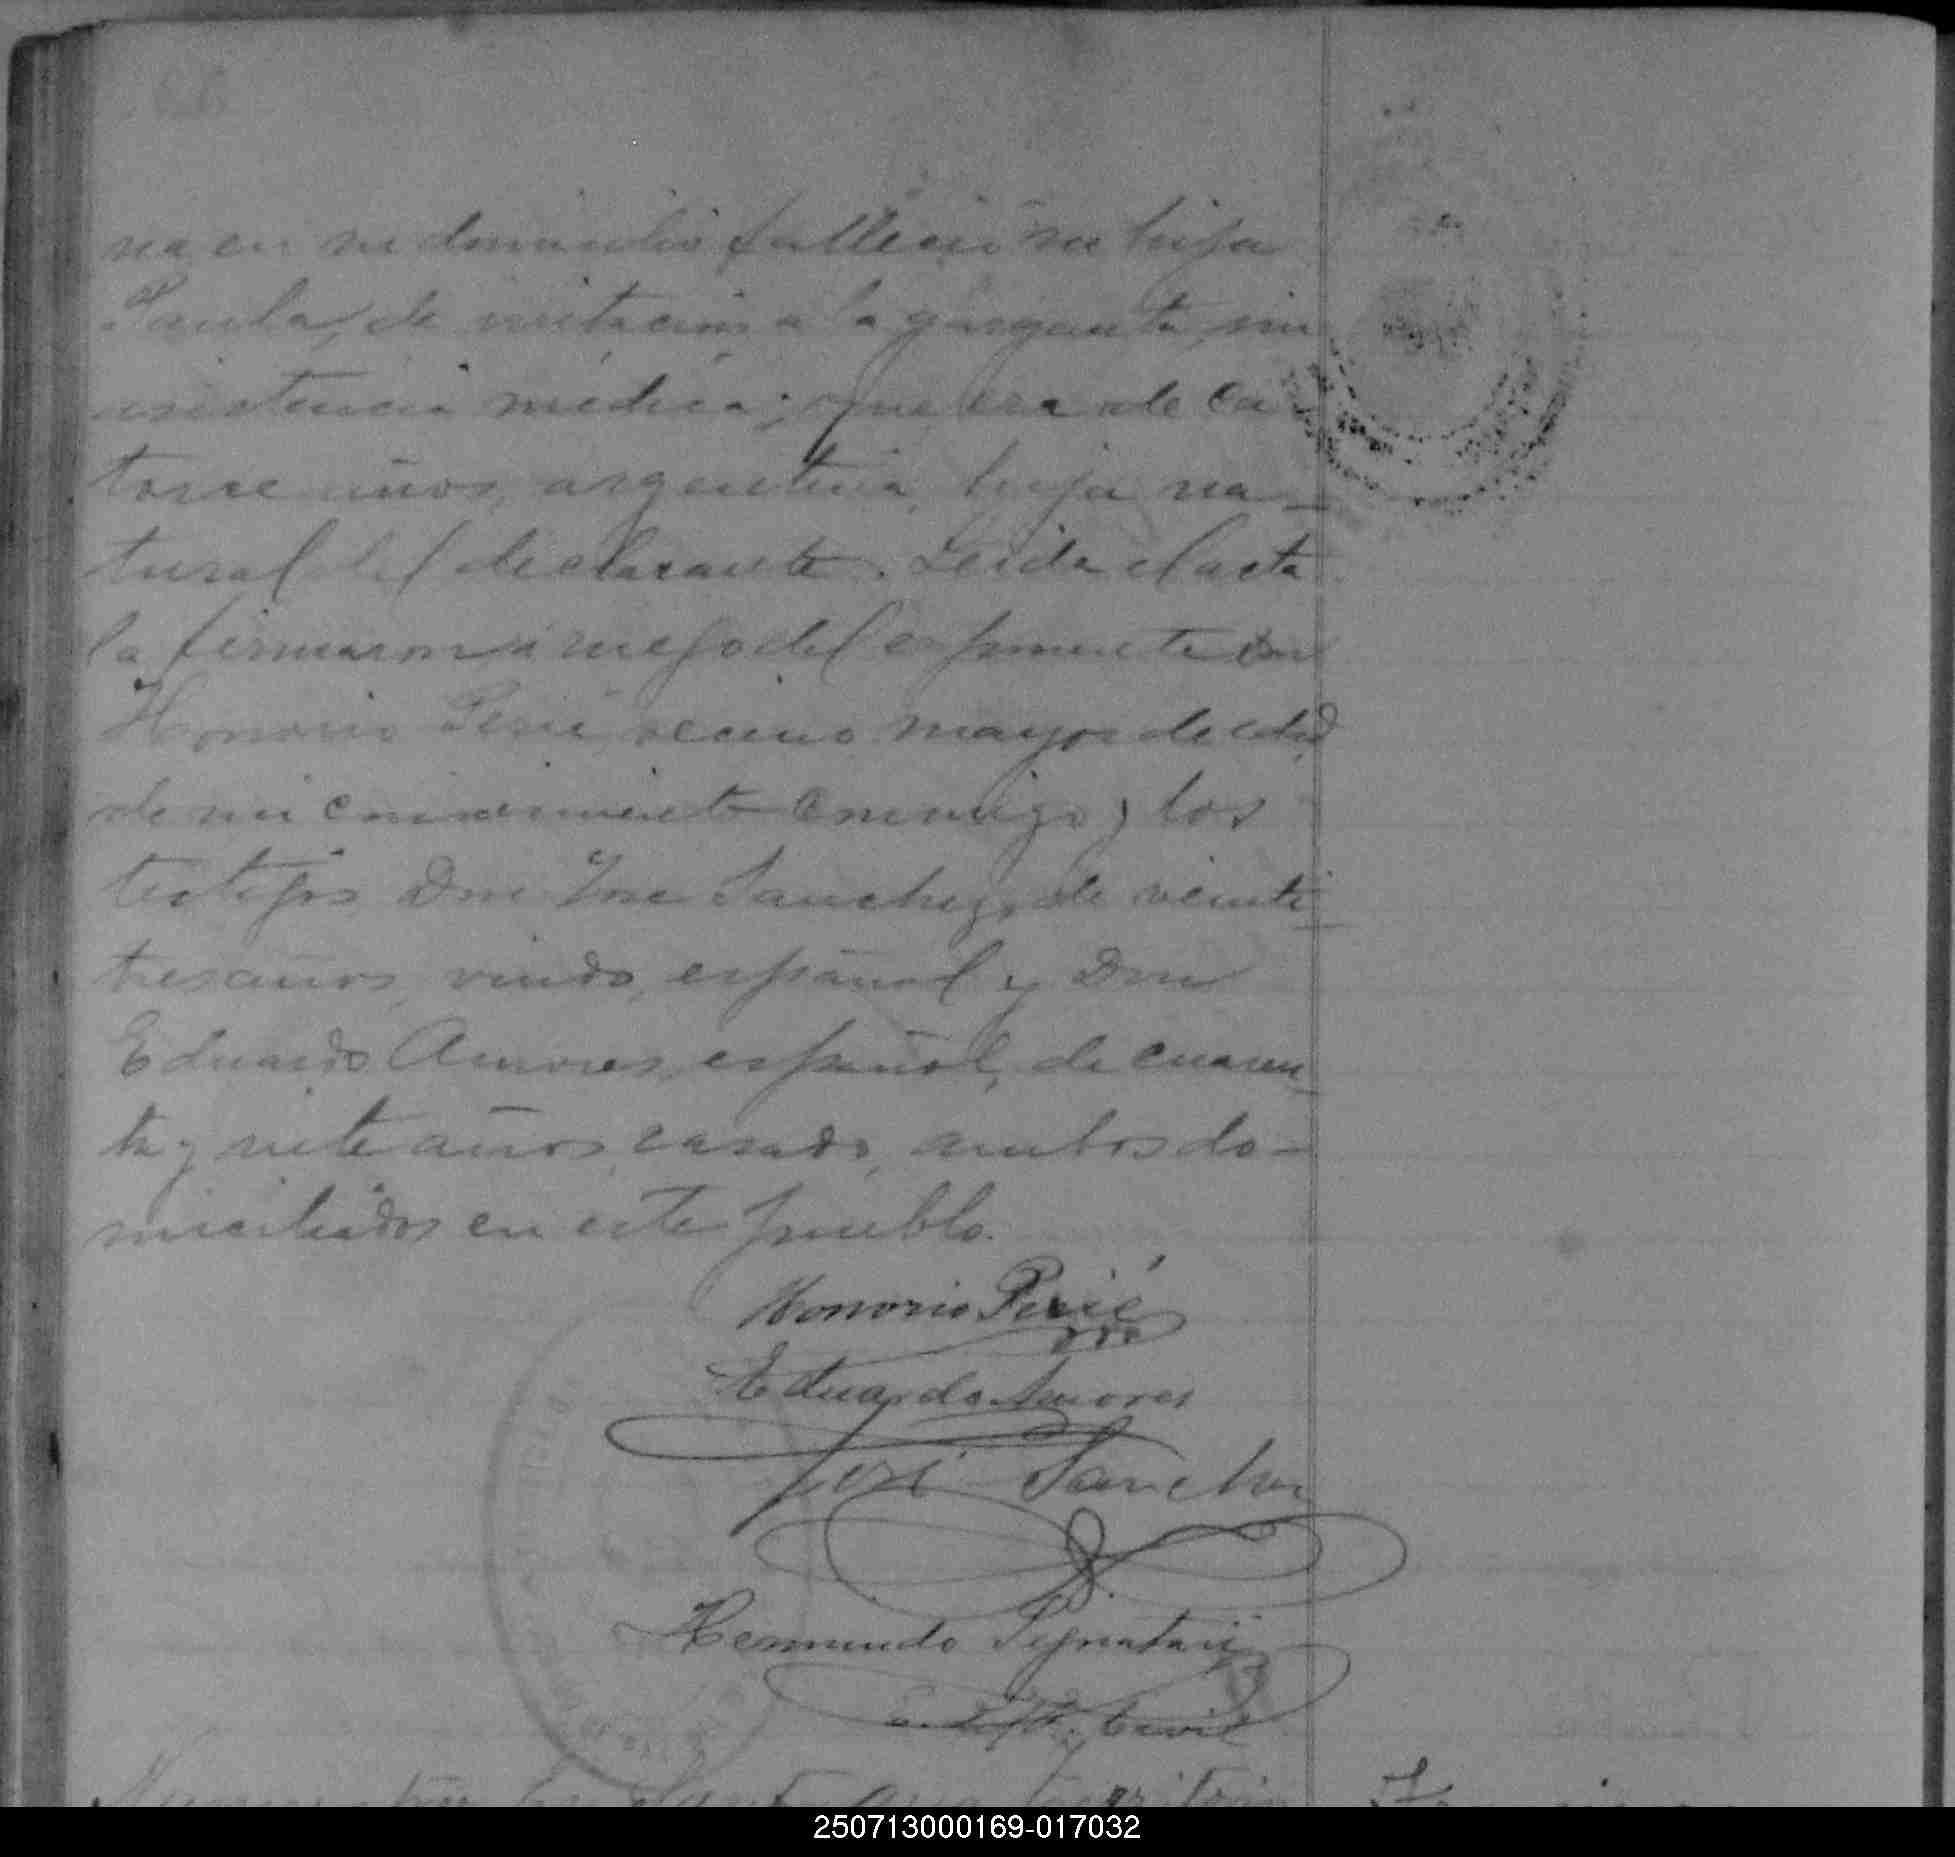 na en su domicilio fallecio su hija
Paula, de irritacion a la garganta, sin
asistencia médica; que era de ca
torce años, argentina, hija na_
tural del declarante. Leida el acta
la firmaron á ruego del exponente Don
Honorio Perié, vecino mayor de edad
de mi conocimiento conmigo y los
testigos Don José Sanchez, de veinti_
tres años, viudo, español y Don
Eduardo Amores, español, de cuaren_
ta y siete años, casado, ambos do-
miciliados en este pueblo.
Honorio Perié
Eduardo Amores
José Sanchez
Hermindo
Civil
250713000169-017032